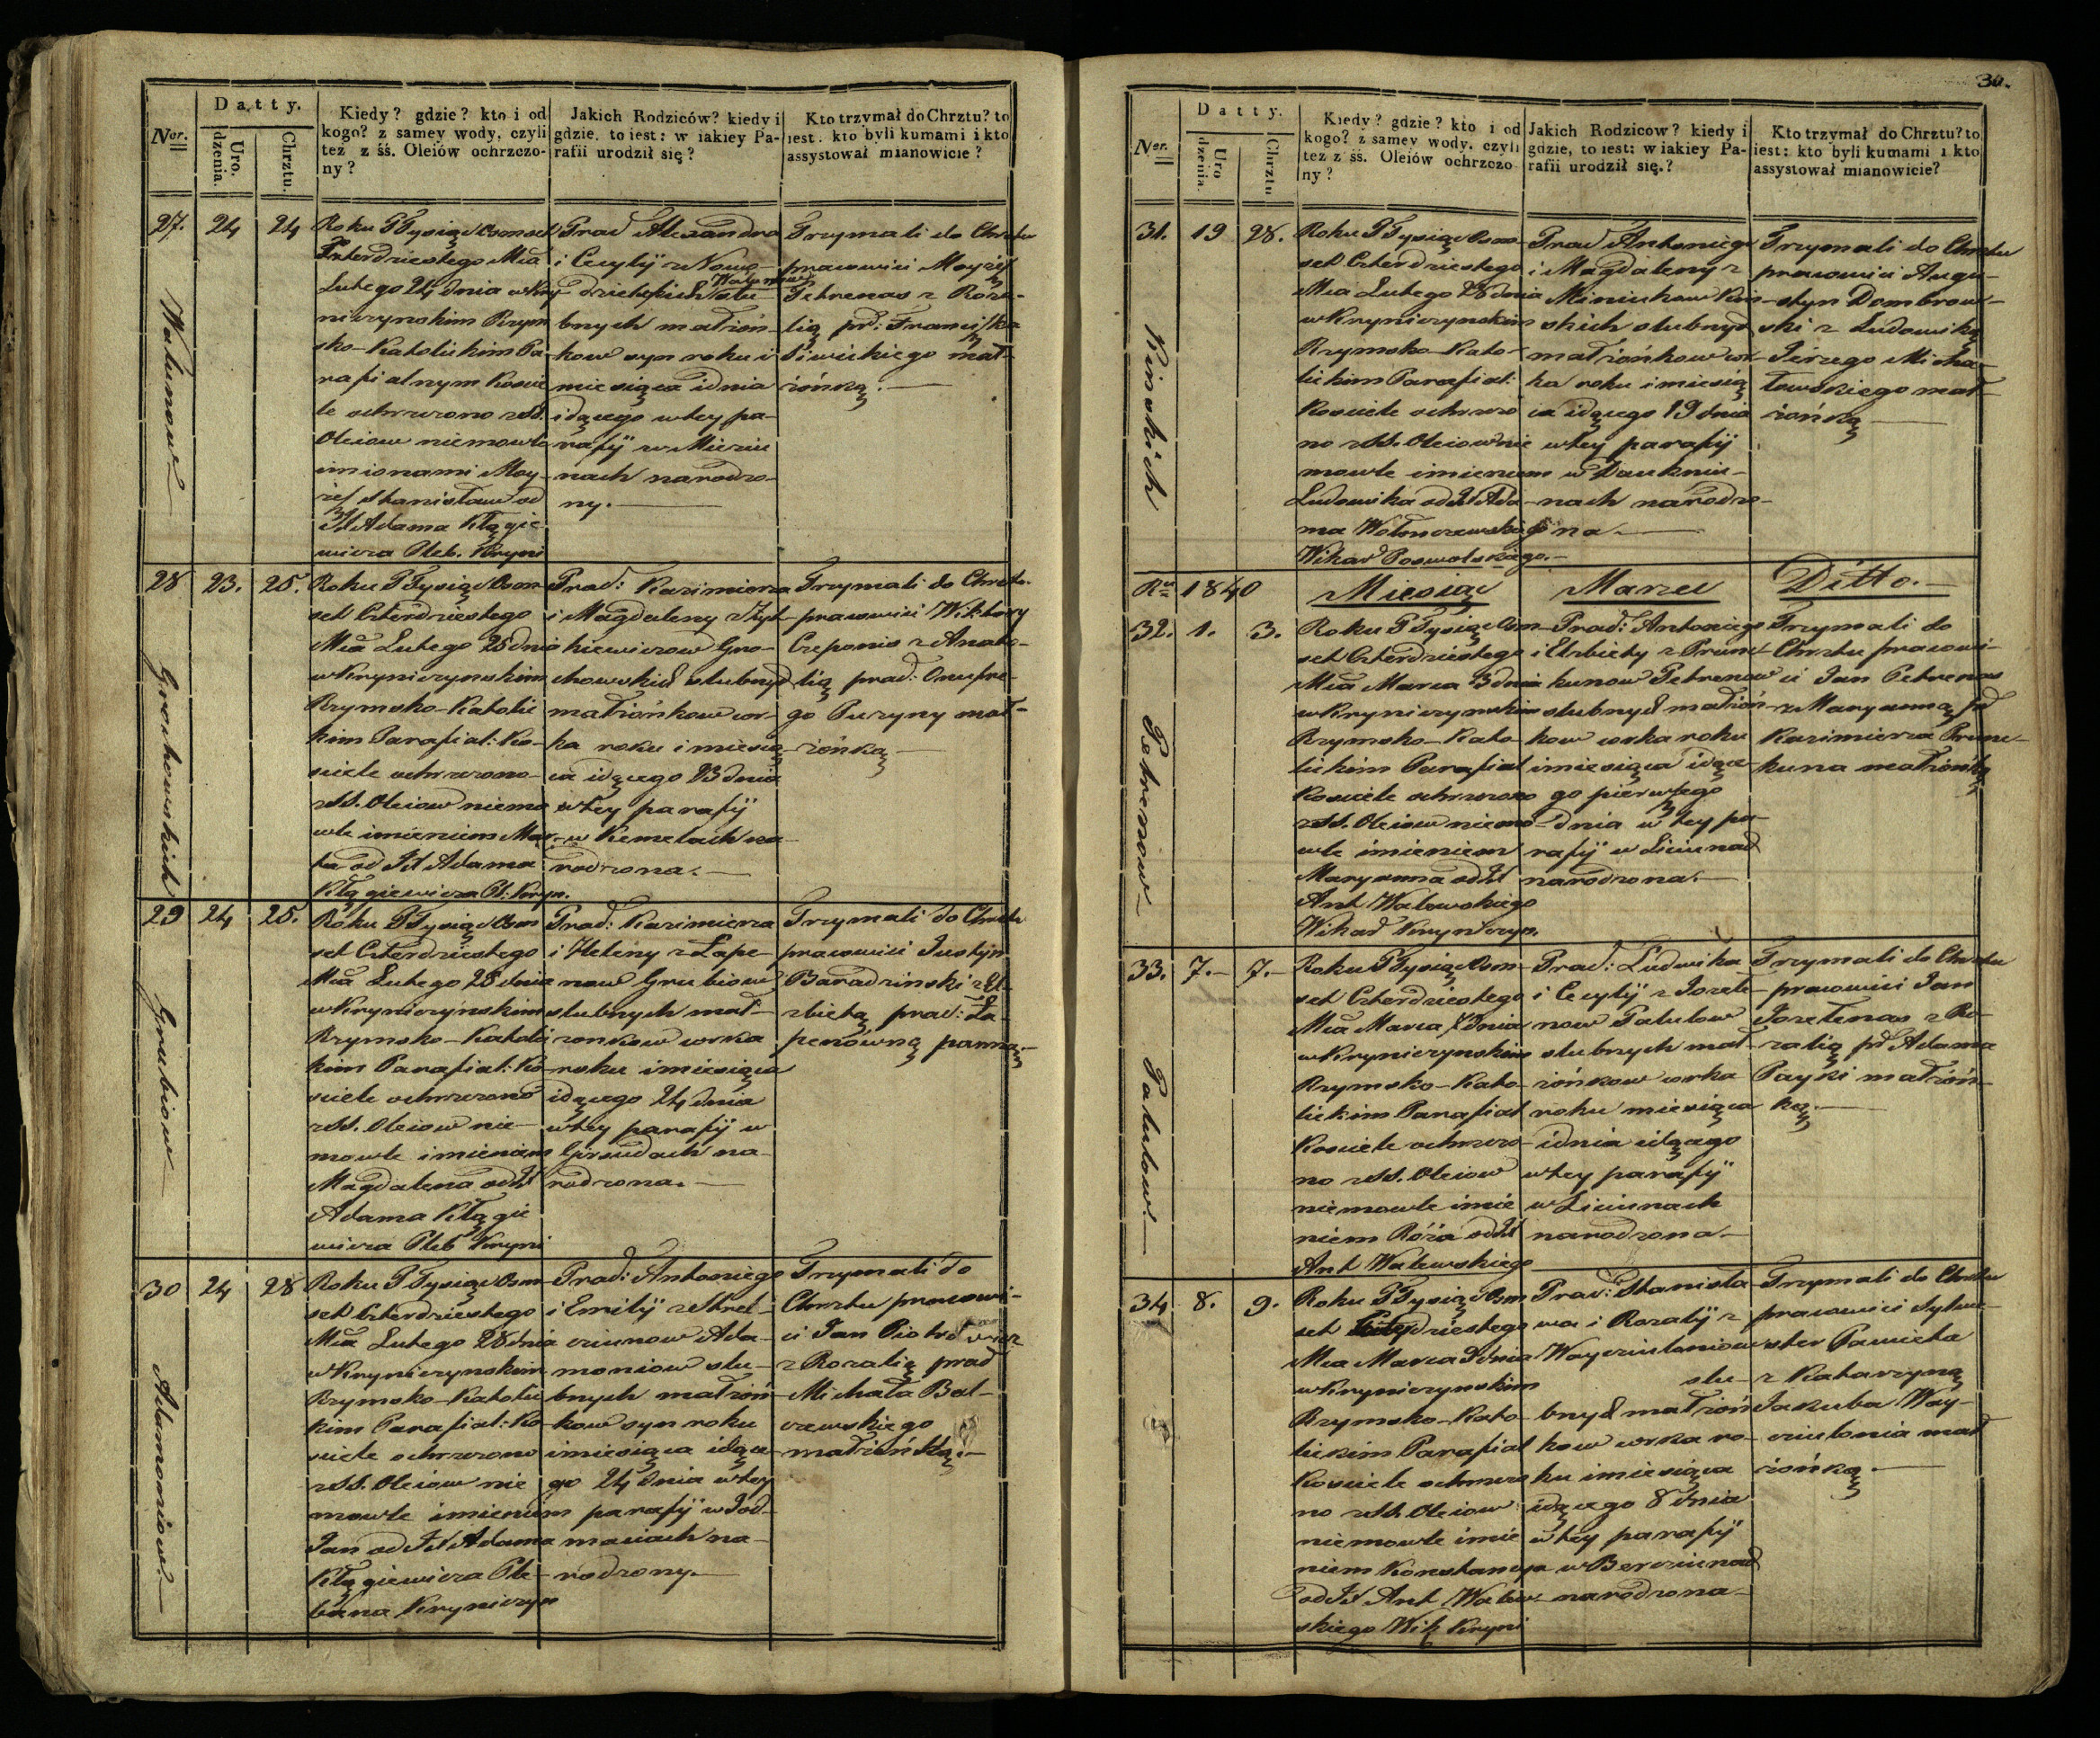 Datty.
Ner.
Uro-
dzenia.
Chrztu.
Kiedy? gdzie? kto i od
kogo? z samey wody, czyli
też z śś. Oleiów ochrzczo-
ny?
Jakich Rodziców? kiedy i
gdzie, to iest: w iakiey Pa-
rafii urodził się?
Kto trzymał do Chrztu? to
iest. kto byli kumami i kto
assystował mianowicie?
27. 24 24
Walunow
Roku TTysiąc Osmset
Czterdziestego Mca
Lutego 24 dnia w Kry-
niczynskim Rzym
sko-Katolickim Pa-
rafialnym Koscie
le ochrzczono z SS.
Oleiow niemowle
imionami Moy-
żesz Stanisław od
JX Adama Kłągie
wicza Pleb. Kryni
Prac Alexandra
i Cecylÿ z Nowo-
dzielskich Walunow slu-
bnych małżoń-
kow syn roku i
miesiąca i dnia
idącego w tey pa-
rafÿ w Mieziu
nach narodzo-
ny.
Trzymali do Chrztu
pracowici Moyżesz
Petrenas z Roza-
lią pr: Franciszka
Siwickiego mał-
żonką.
28 23. 25.
Grochowskich
Roku TTysiąc Osm
set Czterdziestego
Mca Lutego 25 dnia
w Kryniczynskim
Rzymsko-Katolic
kim Parafial: Ko-
sciele ochrzczono
z SS. Oleiow niemo
wle imieniem Mar-
ta od JX Adama
Kłągiewicza Pl: Kryn.
Prac: Kazimierza
i Magdaleny z Żyt-
kiewiczow Gro-
chowskich slubnych
małżonkow cor-
ka roku i miesią-
ca idącego 23 dnia
w tey parafÿ
w Kemelach na
rodzona.
Trzymali do Chrztu.
pracowici Wiktory
Czeponis z Anato-
lią prac: Onufre-
go Puzyny mał-
żonką
29 24 25.
Grubiow
Roku TTysiąc Osm
set Czterdziestego
Mca Lutego 25 dnia
w Kryniczynskim
Rzymsko-Katolic
kim Parafial: Ko-
sciele ochrzczono
z SS. Oleiow nie-
mowle imieniem
Magdalena od JX
Adama Kłągie
wicza Pleb Kryni
Prac: Kazimierza
i Heleny z Łape-
now Grubiow
slubnych mał-
zonkow corka
roku i miesiąca
idącego 24 dnia
w tey parafÿ w
Grudach na-
rodzona.
Trzymali do Chrztu
pracowici Justyn
Baradzinski z El-
zbietą prac: Ła-
penowną panną.
30 24 28
Adamoniow.
Roku TTysiąc Osm
set Czterdziestego
Mca Lutego 28 dnia
w Kryniczynskim
Rzymsko-Katolic
kim Parafial: Ko-
sciele ochrzczono
z SS. Oleiow nie
mowle imieniem
Jan od JX Adama
Kłągiewicza Ple-
bana Kryniczyn
Prac: Antoniego
i Emilÿ z Strel-
ciunow Ada-
moniow slu-
bnych małżoń
kow syn roku
i miesiąca idące-
go 24 dnia w tey
parafÿ w Jod-
maciach na-
rodzony.
Trzymali do
Chrztu pracowi-
ci Jan Piotrowicz
z Rozalią prac
Michała Bal-
czewskiego
małżonką.
30.
Datty.
Ner.
Uro
dzenia.
Chrztu
Kiedy? gdzie? kto i od
kogo? z samey wody, czyli
też z śś. Oleiów ochrzczo
ny?
Jakich Rodzicow? kiedy i
gdzie, to iest: w iakiey Pa-
rafii urodził się.?
Kto trzymał do Chrztu? to
iest: kto byli kumami i kto
assystował mianowicie?
31. 19 28.
Kinskich
Roku TTysiąc Osm-
set Czterdziestego
Mca Lutego 28 dnia
w Kryniczynskim
Rzymsko-Kato-
lickim Parafial:
Kosciele ochrzczo
no z SS. Oleiow nie
mowle imieniem
Ludowika od JX Ada-
ma Wołmczewskiego
Wikar Poswolskiego.
Prac Antoniego
i Magdaleny z
Miniukow Kin-
skich slubnych
małżonkow cor-
ka roku i miesią
ca idącego 19 dnia
w tey parafÿ
w Daukniu-
nach narodzo-
na.
Trzymali do Chrztu
pracowici Augu-
styn Dombrow-
ski z Ludowiką
Jerzego Micha-
łowskiego mał-
żonką
Ru 1840 Miesiąc Marzec Ditto.
32. 1. 3.
Petrenow
Roku TTysiąc Osm-
set Czterdziestego
Mca Marca 3 dnia
w Kryniczynskim
Rzymsko-Kato-
lickim Parafial
Kosciele ochrzczono
z SS. Oleiow niemo-
wle imieniem
Maryanna od JX
Ant Walewskiego
Wikar Kryniczyn.
Prac: Antoniego
i Elzbiety z Prun-
kunow Petrenow
slubnych małżoń-
kow corka roku
i miesiąca idące-
go pierwszego
dnia w tey pa-
rafÿ w Liciunach
narodzona.
Trzymali do
Chrztu pracowi-
ci Jan Petrenas
z Maryanną pr
Kazimierza Prun-
kuna małżonką
33. 7. 7.
Patulow.
Roku TTysiąc Osm-
set Czterdziestego
Mca Marca 7 dnia
w Kryniczynskim
Rzymsko-Kato-
lickim Parafial
Kosciele ochrzczo-
no z SS. Oleiow
niemowle imie
niem Róża od JX
Ant Walewskiego
Prac: Ludwika
i Cecylÿ z Jozele-
now Patulow
slubnych mał-
żonkow corka
roku miesiąca
i dnia idącego
w tey parafÿ
w Liciunach
narodzona.
Trzymali do Chrztu
pracowici Jan
Jozelenas z Ro-
zalią pr Adama
Payki małżon-
ką.
34 8. 9.
Roku TTysiąc Osm
set Czterdziestego
Mca Marca 9 dnia
w Kryniczynskim
Rzymsko-Kato-
lickim Parafial
Kosciele ochrzczo
no z SS. Oleiow
niemowle imie
niem Konstancya
od JX Ant Walew-
skiego Wik Kryni
Prac: Stanisła
wa i Rozalÿ z
Wayciulaniow
slu-
bnych małżoń
kow corka ro-
ku i miesiąca
idącego 8 dnia
w tey parafÿ
w Berciunach
narodzona
Trzymali do Chrztu
pracowici Sylwe-
ster Pamieta
z Katarzyną
Jakuba Way-
ciulania mał
żonką.